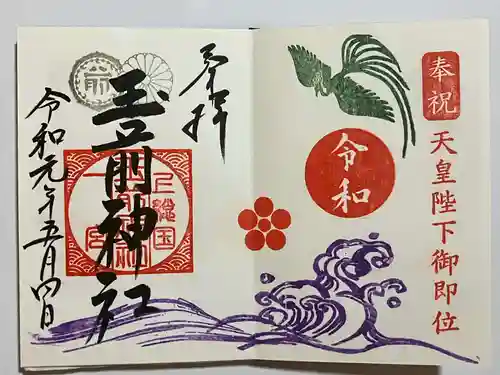 奉祝
天皇陛下御即位
令和
奉拝
玉前神社
上総国
一宮
令和元年五月四日